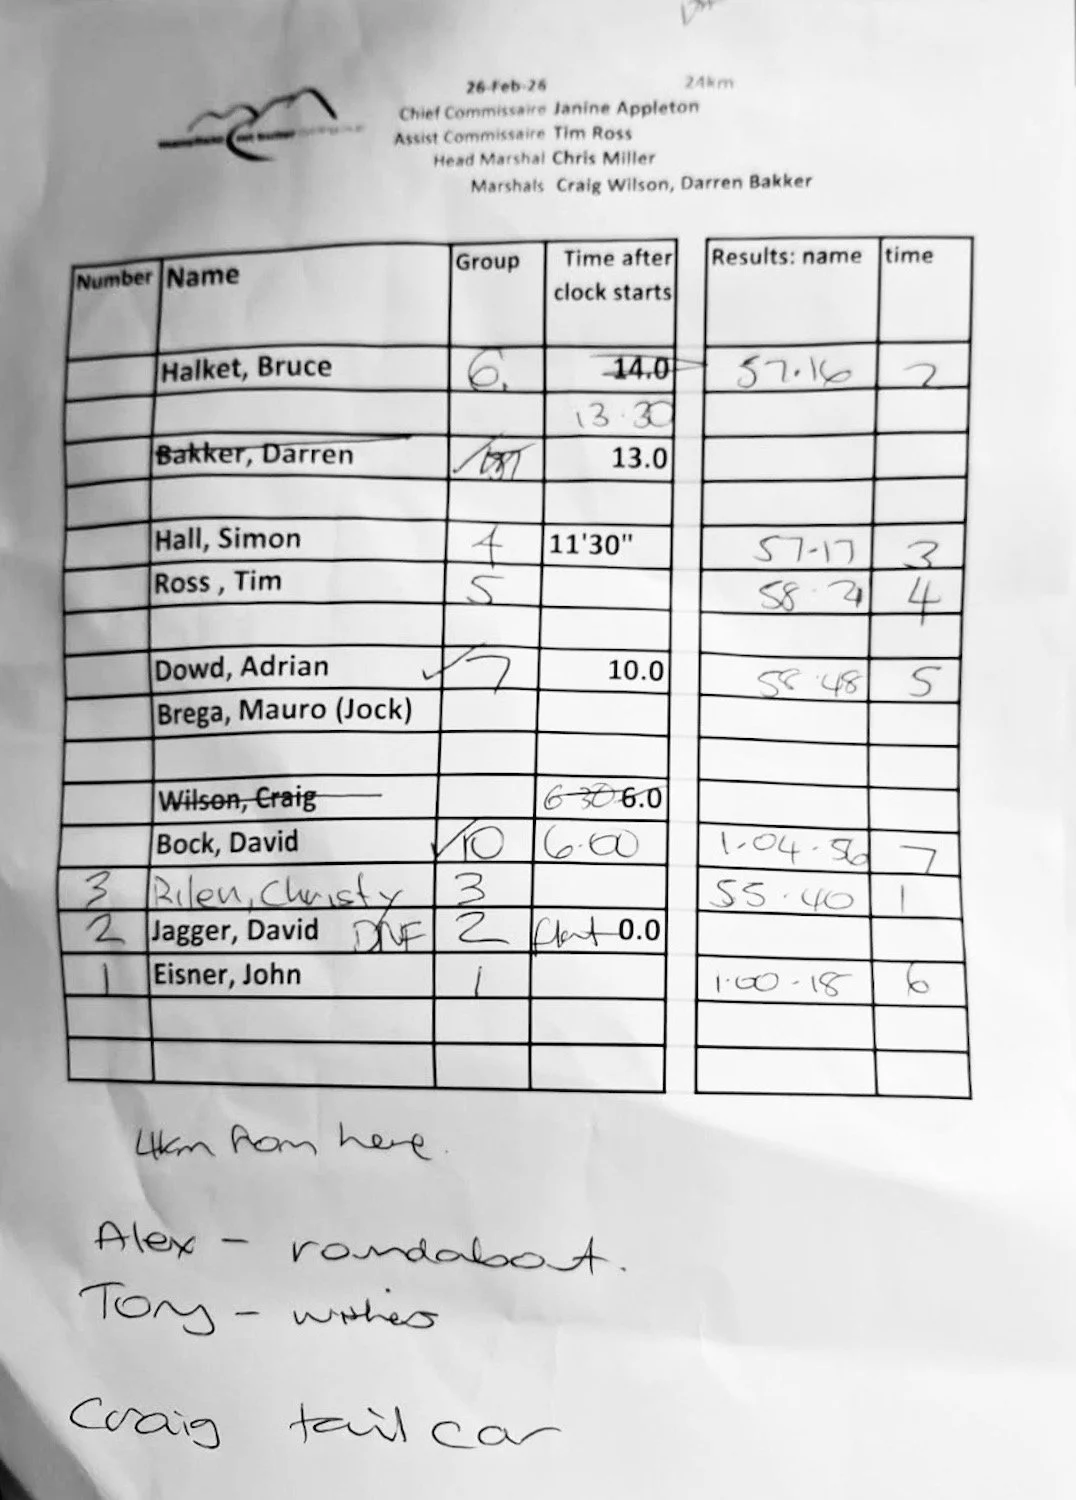 26-Feb-26 24km
Chief Commissaire Janine Appleton
Assist Commissaire Tim Ross
Head Marshal Chris Miller
Marshals Craig Wilson, Darren Bakker
Number Name Group Time after clock starts Results: name time
Halket, Bruce 6. 14.0 57.16 2
13.30
Bakker, Darren 13.0
Hall, Simon 4 11'30" 57-17 3
Ross , Tim 5 58.21 4
Dowd, Adrian 7 10.0 58.48 5
Brega, Mauro (Jock)
Wilson, Craig 6-30 6.0
Bock, David 10 6.00 1.04.56 7
3 Rilen, Christy 3 55.40 1
2 Jagger, David DNF 2 0.0
1 Eisner, John 1 1.00-18 6
4km from here.
Alex - roundabout.
Tony -
Craig tail car